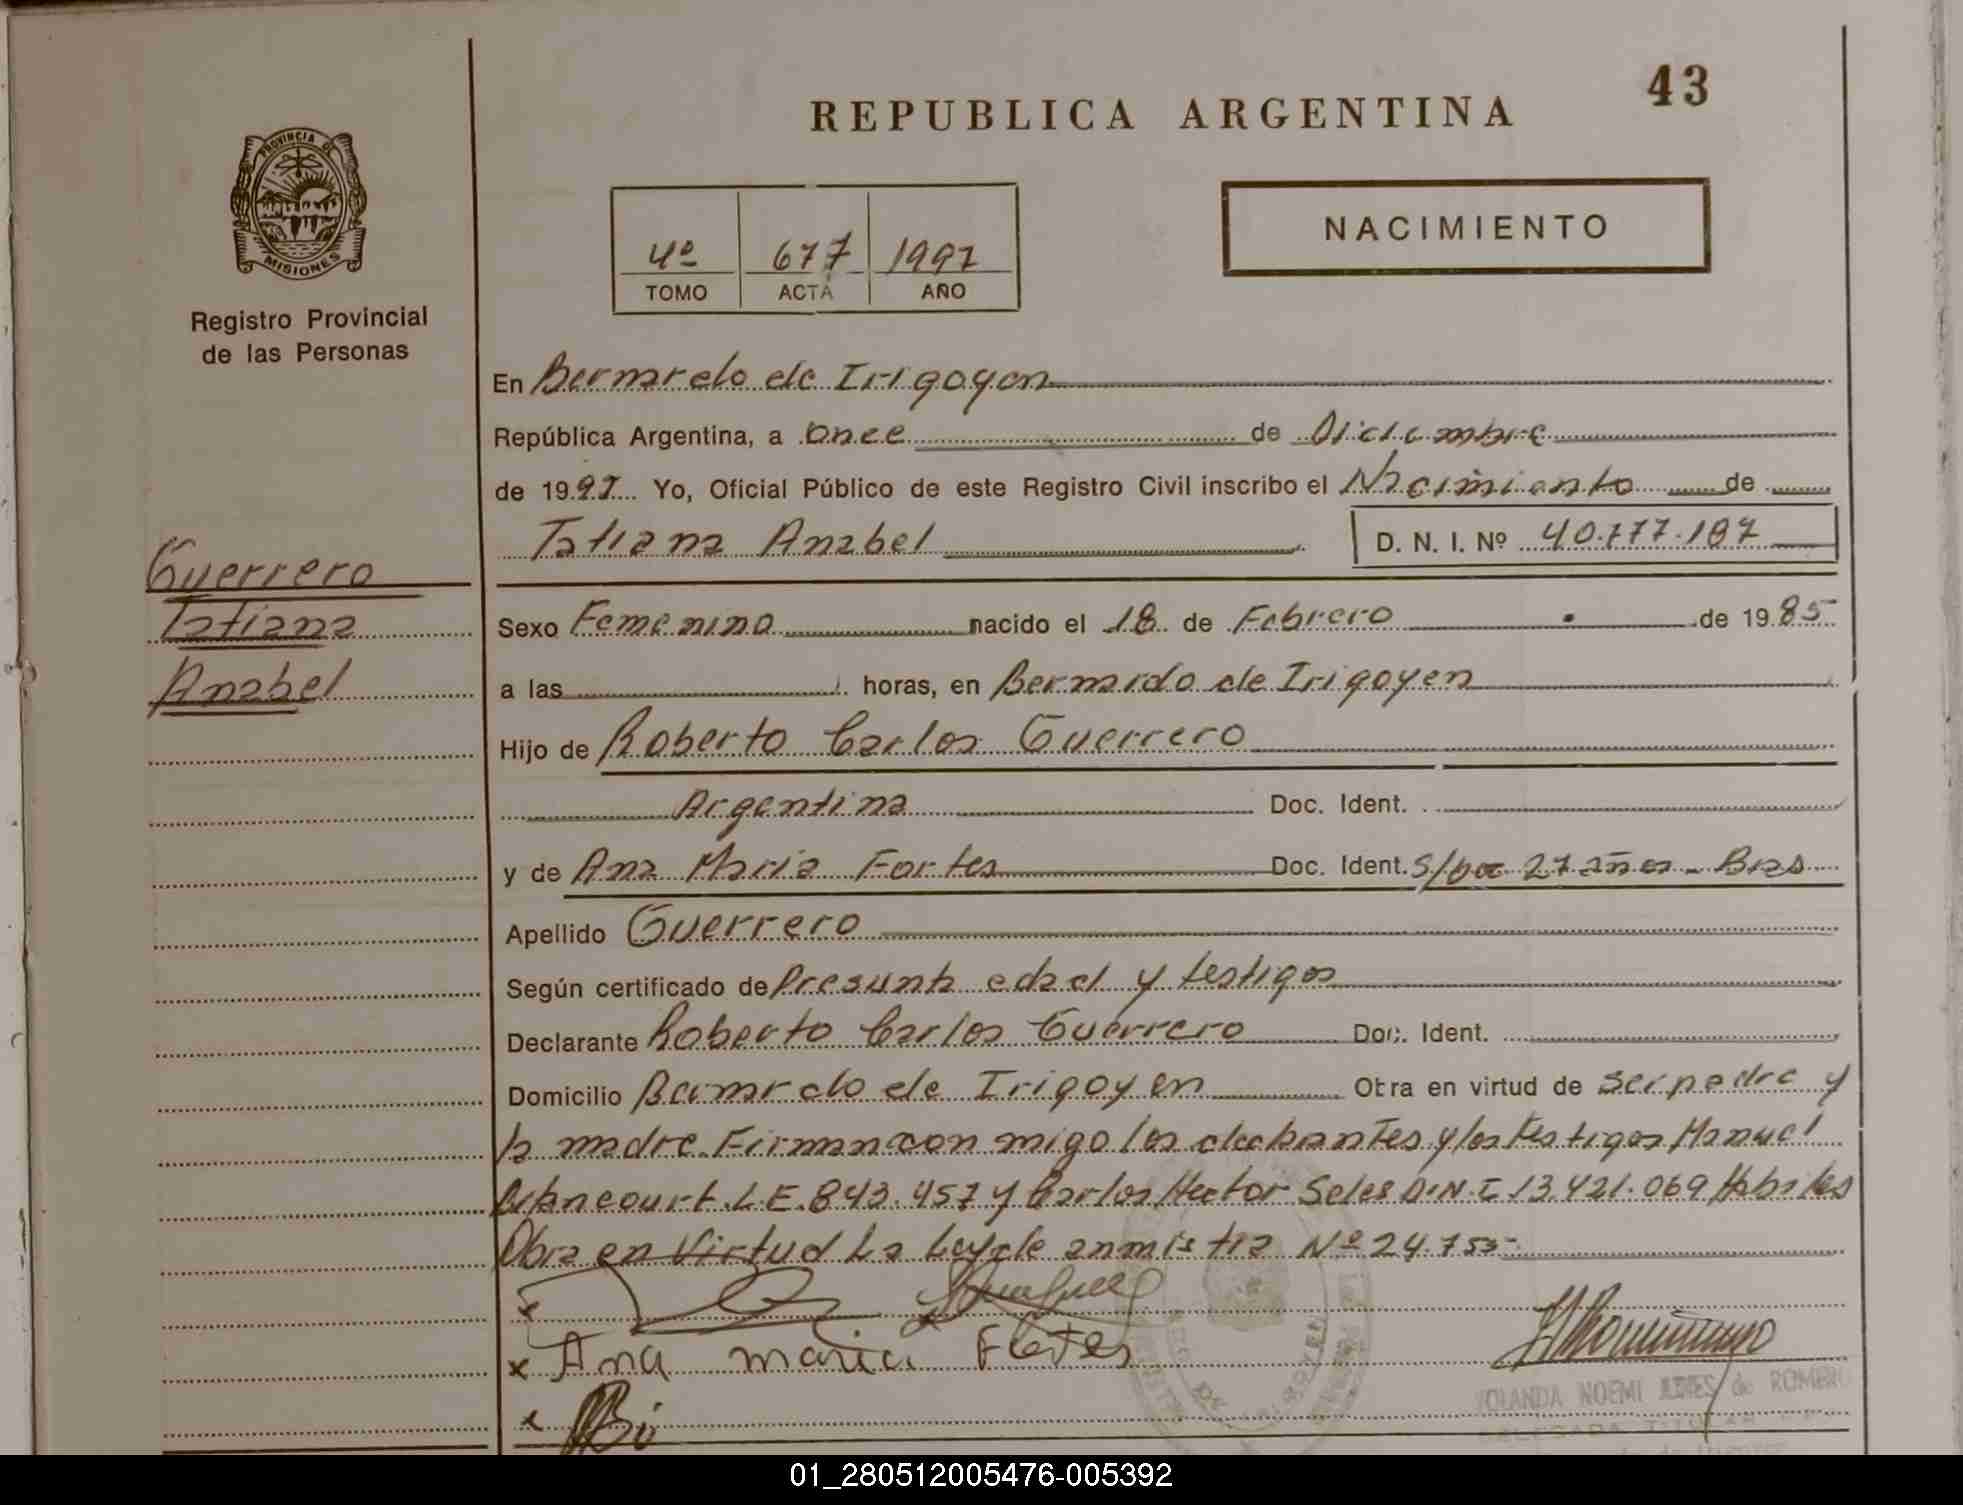 43
REPUBLICA ARGENTINA
PROVINCIA DE
MISIONES
Registro Provincial
de las Personas
NACIMIENTO
4º 677 1997
TOMO ACTA AÑO
En Bernardo de Irigoyen
República Argentina, a once de Diciembre
de 1997 Yo, Oficial Público de este Registro Civil inscribo el Nacimiento de
Tatiana Anabel D. N. I. Nº 40.777.187
Guerrero
Tatiana
Anabel
Sexo Femenino nacido el 18 de Febrero de 1985
a las horas, en Bernardo de Irigoyen
Hijo de Roberto Carlos Guerrero
Argentina Doc. Ident.
y de Ana Maria Fortes Doc. Ident. S/Doc 27 años - Bras
Apellido Guerrero
Según certificado de Presunta edad y testigos
Declarante Roberto Carlos Guerrero Doc. Ident.
Domicilio Bernardo de Irigoyen Otra en virtud de ser padre y
la madre. Firman con migo los declarantes y los testigos Manuel
Betancourt. L.E. 843.457 y Carlos Hector Seles D.N.I 13.421.069 Habiles
Obra en Virtud La Ley de anmistia Nº 24.755-
x
x Ana maria Fortes
x
YOLANDA NOEMI de ROMERO
01_280512005476-005392